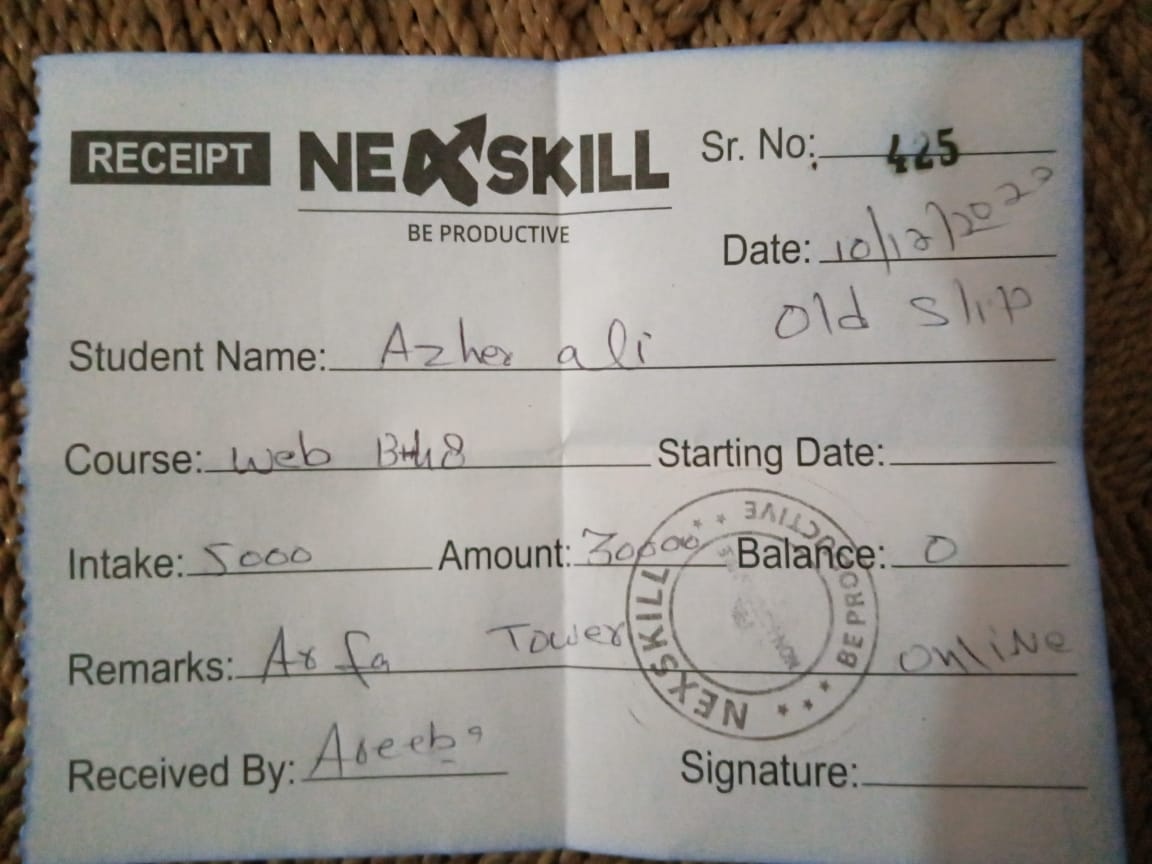 RECEIPT NEXSKILL Sr. No: 425
BE PRODUCTIVE
Date: 10/12/2020
Old Slip
Student Name: Azher ali
Course: Web Starting Date:
Intake: 5000 Amount: 30000 Balance: 0
Remarks: Arfa Tower Online
Received By: Areeba
Signature:
NEXSKILL BE PRODUCTIVE